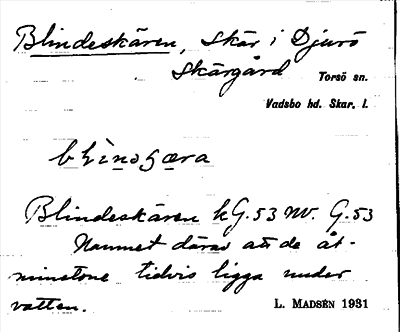 Blindeskären, skär i Djurö
Skärgård Torsö sn.
Vadsbo hd. Skar. l.
Blindeskären kG.53 NV. G.53
Namnet därav att de åt-
minstone tidvis ligga under
vatten. L. MADSÉN 1931